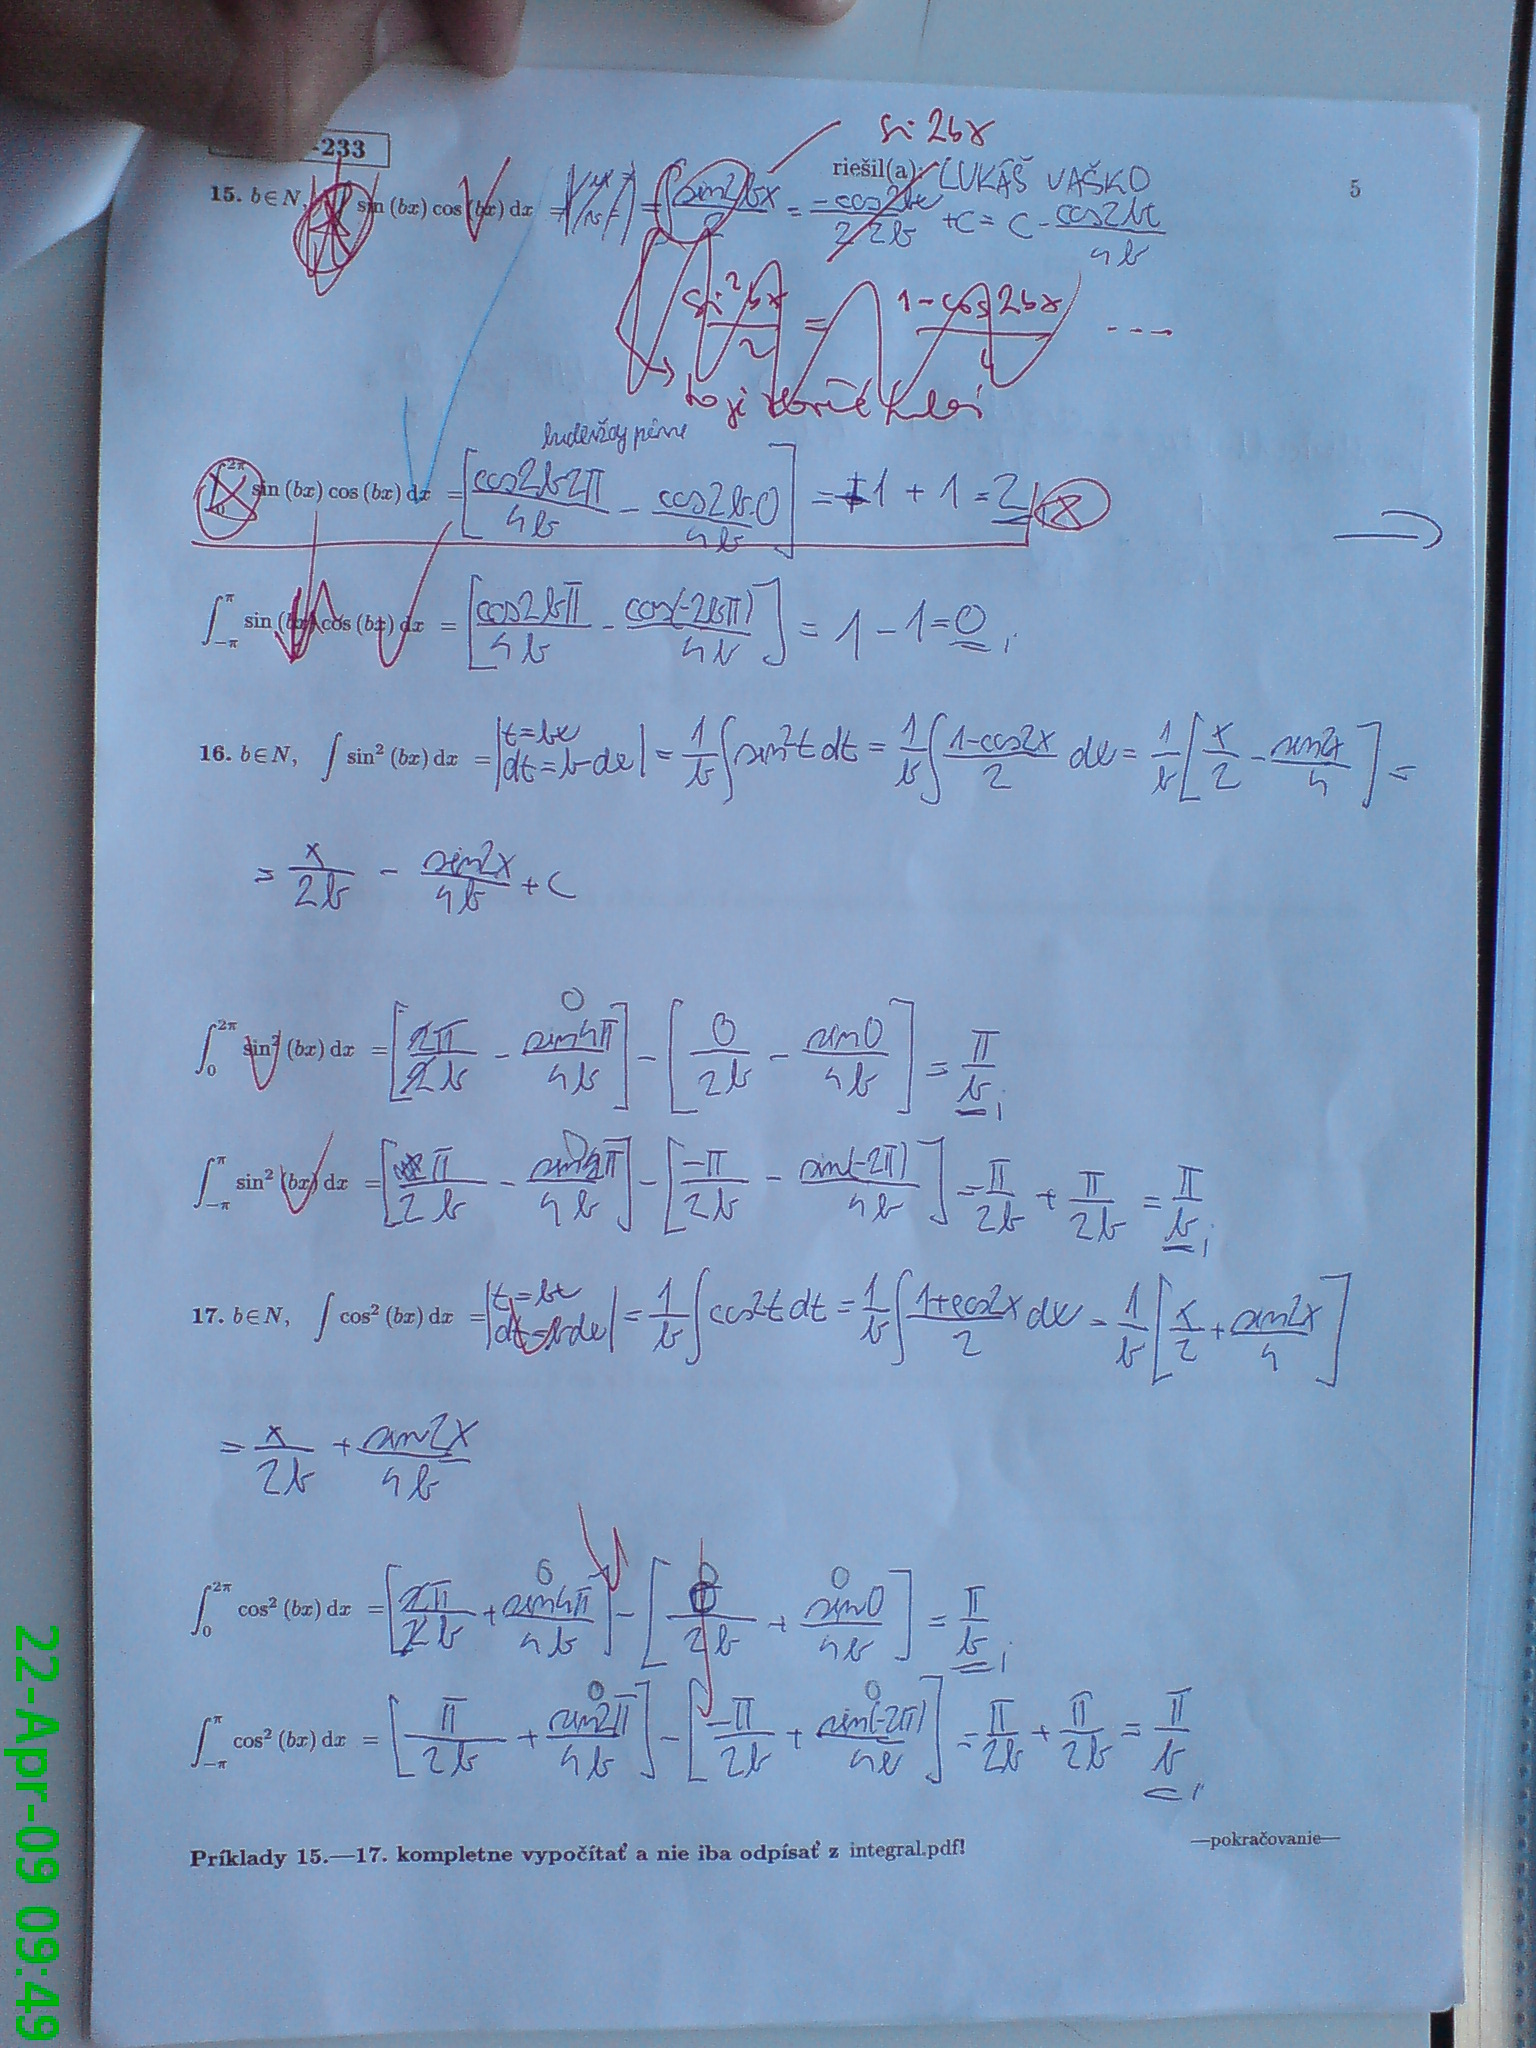 -233
si 2bx
riešil(a): LUKÁŠ VAŠKO
5
15. b∈N, sin (bx) cos (bx) dx = = ∫ sin2bx / 2 = -cos2bx / 2·2b +c = c - cos2bx / 4b
si² bx / 2 = 1-cos 2bx / ----
∫₀^2π sin (bx) cos (bx) dx = [cos2b2π / 4b - cos2b.0 / 4b] = 1 + 1 = 2
∫₋π^π sin (bx) cos (bx) dx = [cos2bπ / 4b - cos(-2bπ) / 4b] = 1 - 1 = 0 ;
16. b∈N, ∫ sin² (bx) dx = |t=bx dt=b·dx| = 1/b ∫ sin²t dt = 1/b ∫ 1-cos2x / 2 dx = 1/b [x/2 - sin2x / 4] =
= x / 2b - sin2x / 4b + c
∫₀^2π sin² (bx) dx = [2π / 2b - sin4π / 4b] - [0 / 2b - sin0 / 4b] = π / b ;
∫₋π^π sin² (bx) dx = [π / 2b - sin2π / 4b] - [-π / 2b - sin(-2π) / 4b] = π / 2b + π / 2b = π / b ;
17. b∈N, ∫ cos² (bx) dx = |t=bx dt=b·dx| = 1/b ∫ cos²t dt = 1/b ∫ 1+cos2x / 2 dx = 1/b [x/2 + sin2x / 4]
= x / 2b + sin2x / 4b
∫₀^2π cos² (bx) dx = [2π / 2b + sin4π / 4b] - [0 / 2b + sin0 / 4b] = π / b ;
∫₋π^π cos² (bx) dx = [π / 2b + sin2π / 4b] - [-π / 2b + sin(-2π) / 4b] = π / 2b + π / 2b = π / b ;
—pokračovanie—
Príklady 15.—17. kompletne vypočítať a nie iba odpísať z integral.pdf!
22-Apr-09 09:49